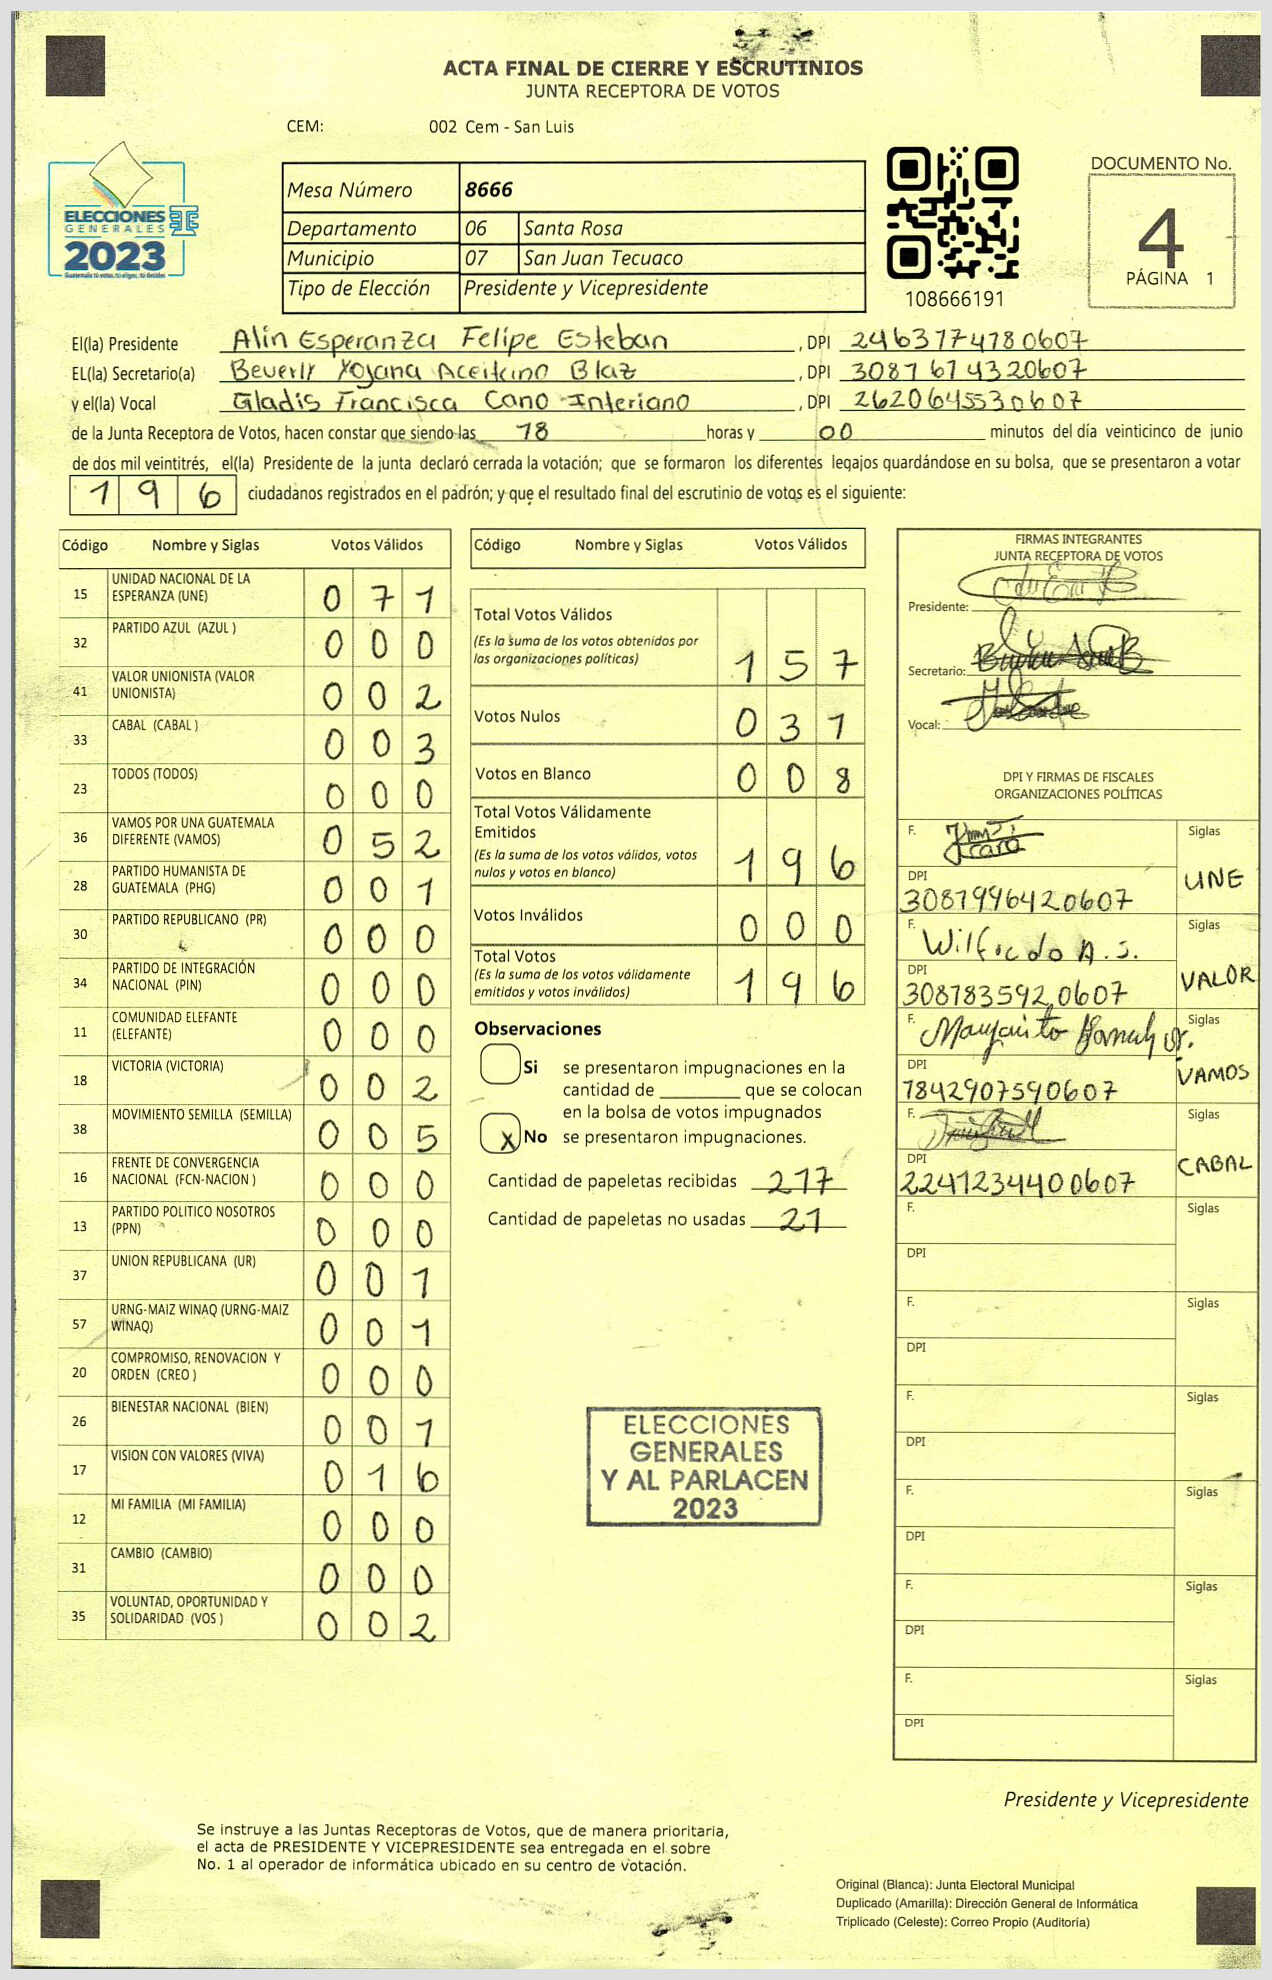 ACTA FINAL DE CIERRE Y ESCRUTINIOS
JUNTA RECEPTORA DE VOTOS
CEM: 002 Cem - San Luis
ELECCIONES
GENERALES
2023
Guatemala tú votas, tú eliges, tú decides
Mesa Número 8666
Departamento 06 Santa Rosa
Municipio 07 San Juan Tecuaco
Tipo de Elección Presidente y Vicepresidente
108666191
DOCUMENTO No.
4
PÁGINA 1
El(la) Presidente Alin Esperanza Felipe Esteban , DPI 2463774780607
EL(la) Secretario(a) Beverly Yojana Aceituno Blaz , DPI 3087674320607
y el(la) Vocal Gladis Francisca Cano Interiano , DPI 2620645530607
de la Junta Receptora de Votos, hacen constar que siendo las 18 horas y 00 minutos del día veinticinco de junio
de dos mil veintitrés, el(la) Presidente de la junta declaró cerrada la votación; que se formaron los diferentes legajos guardándose en su bolsa, que se presentaron a votar
196 ciudadanos registrados en el padrón; y que el resultado final del escrutinio de votos es el siguiente:
Código Nombre y Siglas Votos Válidos
15 UNIDAD NACIONAL DE LA ESPERANZA (UNE) 071
32 PARTIDO AZUL (AZUL ) 000
41 VALOR UNIONISTA (VALOR UNIONISTA) 002
33 CABAL (CABAL ) 003
23 TODOS (TODOS) 000
36 VAMOS POR UNA GUATEMALA DIFERENTE (VAMOS) 052
28 PARTIDO HUMANISTA DE GUATEMALA (PHG) 001
30 PARTIDO REPUBLICANO (PR) 000
34 PARTIDO DE INTEGRACIÓN NACIONAL (PIN) 000
11 COMUNIDAD ELEFANTE (ELEFANTE) 000
18 VICTORIA (VICTORIA) 002
38 MOVIMIENTO SEMILLA (SEMILLA) 005
16 FRENTE DE CONVERGENCIA NACIONAL (FCN-NACION ) 000
13 PARTIDO POLITICO NOSOTROS (PPN) 000
37 UNION REPUBLICANA (UR) 001
57 URNG-MAIZ WINAQ (URNG-MAIZ WINAQ) 001
20 COMPROMISO, RENOVACION Y ORDEN (CREO ) 000
26 BIENESTAR NACIONAL (BIEN) 001
17 VISION CON VALORES (VIVA) 016
12 MI FAMILIA (MI FAMILIA) 000
31 CAMBIO (CAMBIO) 000
35 VOLUNTAD, OPORTUNIDAD Y SOLIDARIDAD (VOS ) 002
Código Nombre y Siglas Votos Válidos
Total Votos Válidos
(Es la suma de los votos obtenidos por
las organizaciones políticas) 157
Votos Nulos 031
Votos en Blanco 008
Total Votos Válidamente
Emitidos
(Es la suma de los votos válidos, votos
nulos y votos en blanco) 196
Votos Inválidos 000
Total Votos
(Es la suma de los votos válidamente
emitidos y votos inválidos) 196
Observaciones
Si se presentaron impugnaciones en la
cantidad de ________ que se colocan
en la bolsa de votos impugnados
X No se presentaron impugnaciones.
Cantidad de papeletas recibidas 217
Cantidad de papeletas no usadas 21
ELECCIONES
GENERALES
Y AL PARLACEN
2023
FIRMAS INTEGRANTES
JUNTA RECEPTORA DE VOTOS
Presidente:
Secretario:
Vocal:
DPI Y FIRMAS DE FISCALES
ORGANIZACIONES POLÍTICAS
F. Siglas
UNE
DPI
3087996420607
F. Wilfredo A. S. Siglas
VALOR
DPI
3087835920607
F. Margarito Siglas
VAMOS
DPI
1842907590607
F. Siglas
CABAL
DPI
2241234400607
F. Siglas
DPI
F. Siglas
DPI
F. Siglas
DPI
F. Siglas
DPI
F. Siglas
DPI
F. Siglas
DPI
Presidente y Vicepresidente
Se instruye a las Juntas Receptoras de Votos, que de manera prioritaria,
el acta de PRESIDENTE Y VICEPRESIDENTE sea entregada en el sobre
No. 1 al operador de informática ubicado en su centro de votación.
Original (Blanca): Junta Electoral Municipal
Duplicado (Amarilla): Dirección General de Informática
Triplicado (Celeste): Correo Propio (Auditoría)